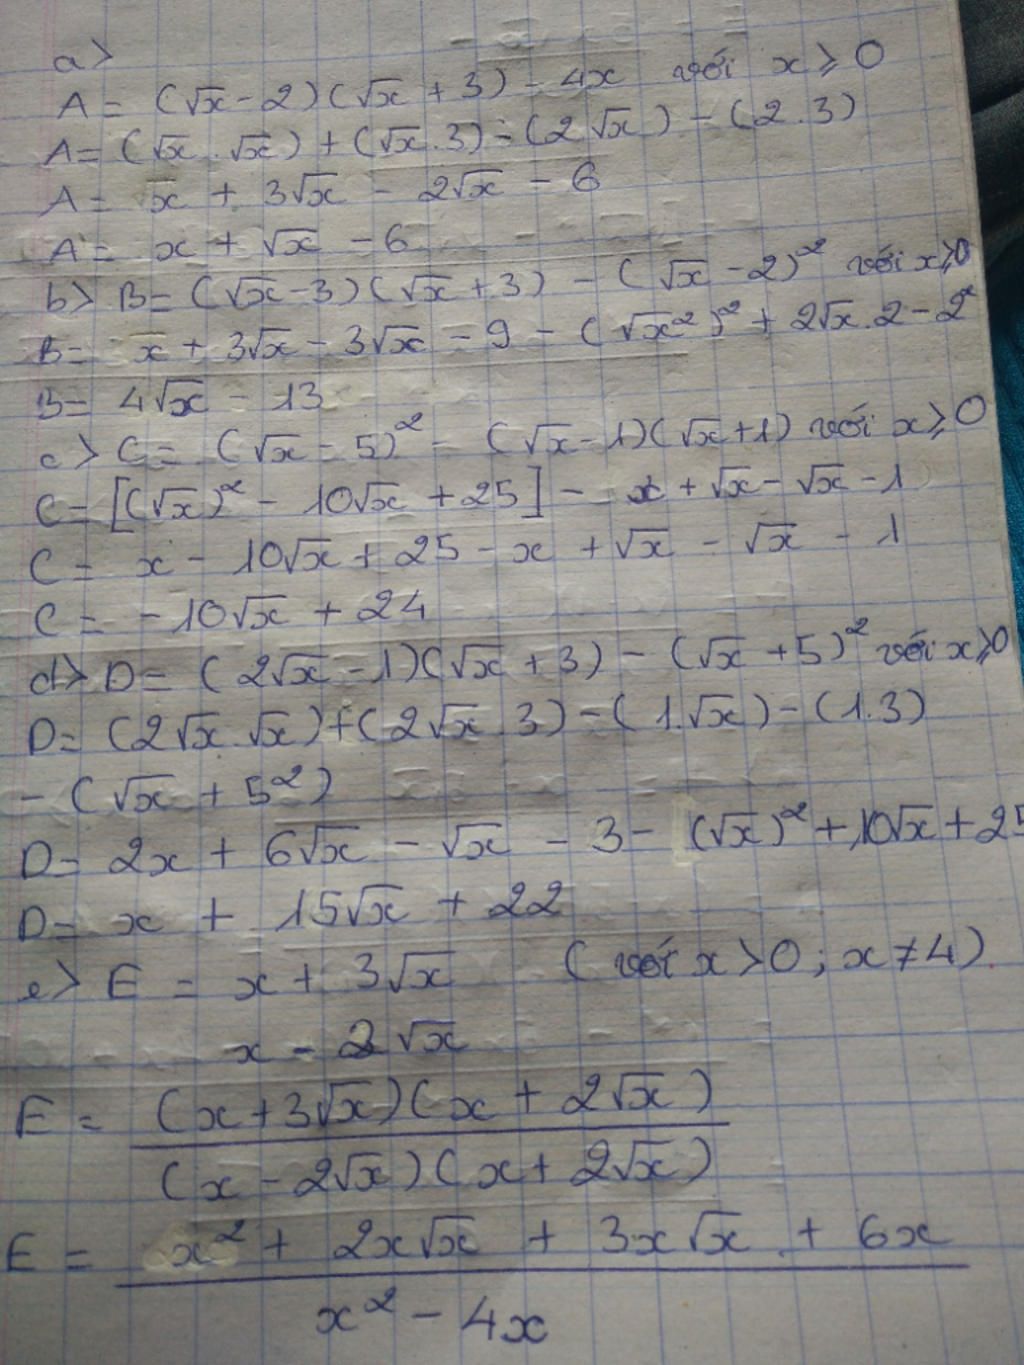 a>
A = (√x - 2)(√x + 3) - 4x với x ≥ 0
A = (√x . √x) + (√x . 3) - (2√x) - (2 . 3)
A = x + 3√x - 2√x - 6
A = x + √x - 6
b> B = (√x - 3)(√x + 3) - (√x - 2)² với x ≥ 0
B = x + 3√x - 3√x - 9 - (√x²)² + 2√x . 2 - 2²
B = 4√x - 13
c> C = (√x - 5)² - (√x - 1)(√x + 1) với x ≥ 0
C = [(√x)² - 10√x + 25] - x + √x - √x - 1
C = x - 10√x + 25 - x + √x - √x - 1
C = -10√x + 24
d> D = (2√x - 1)(√x + 3) - (√x + 5)² với x ≥ 0
D = (2√x . √x) + (2√x . 3) - (1 . √x) - (1 . 3)
- (√x + 5²)
D = 2x + 6√x - √x - 3 - (√x)² + 10√x + 25
D = x + 15√x + 22
e> E = x + 3√x (với x > 0 ; x ≠ 4)
x - 2√x
E = (x + 3√x)(x + 2√x)
(x - 2√x)(x + 2√x)
E = x² + 2x√x + 3x√x + 6x
x² - 4x